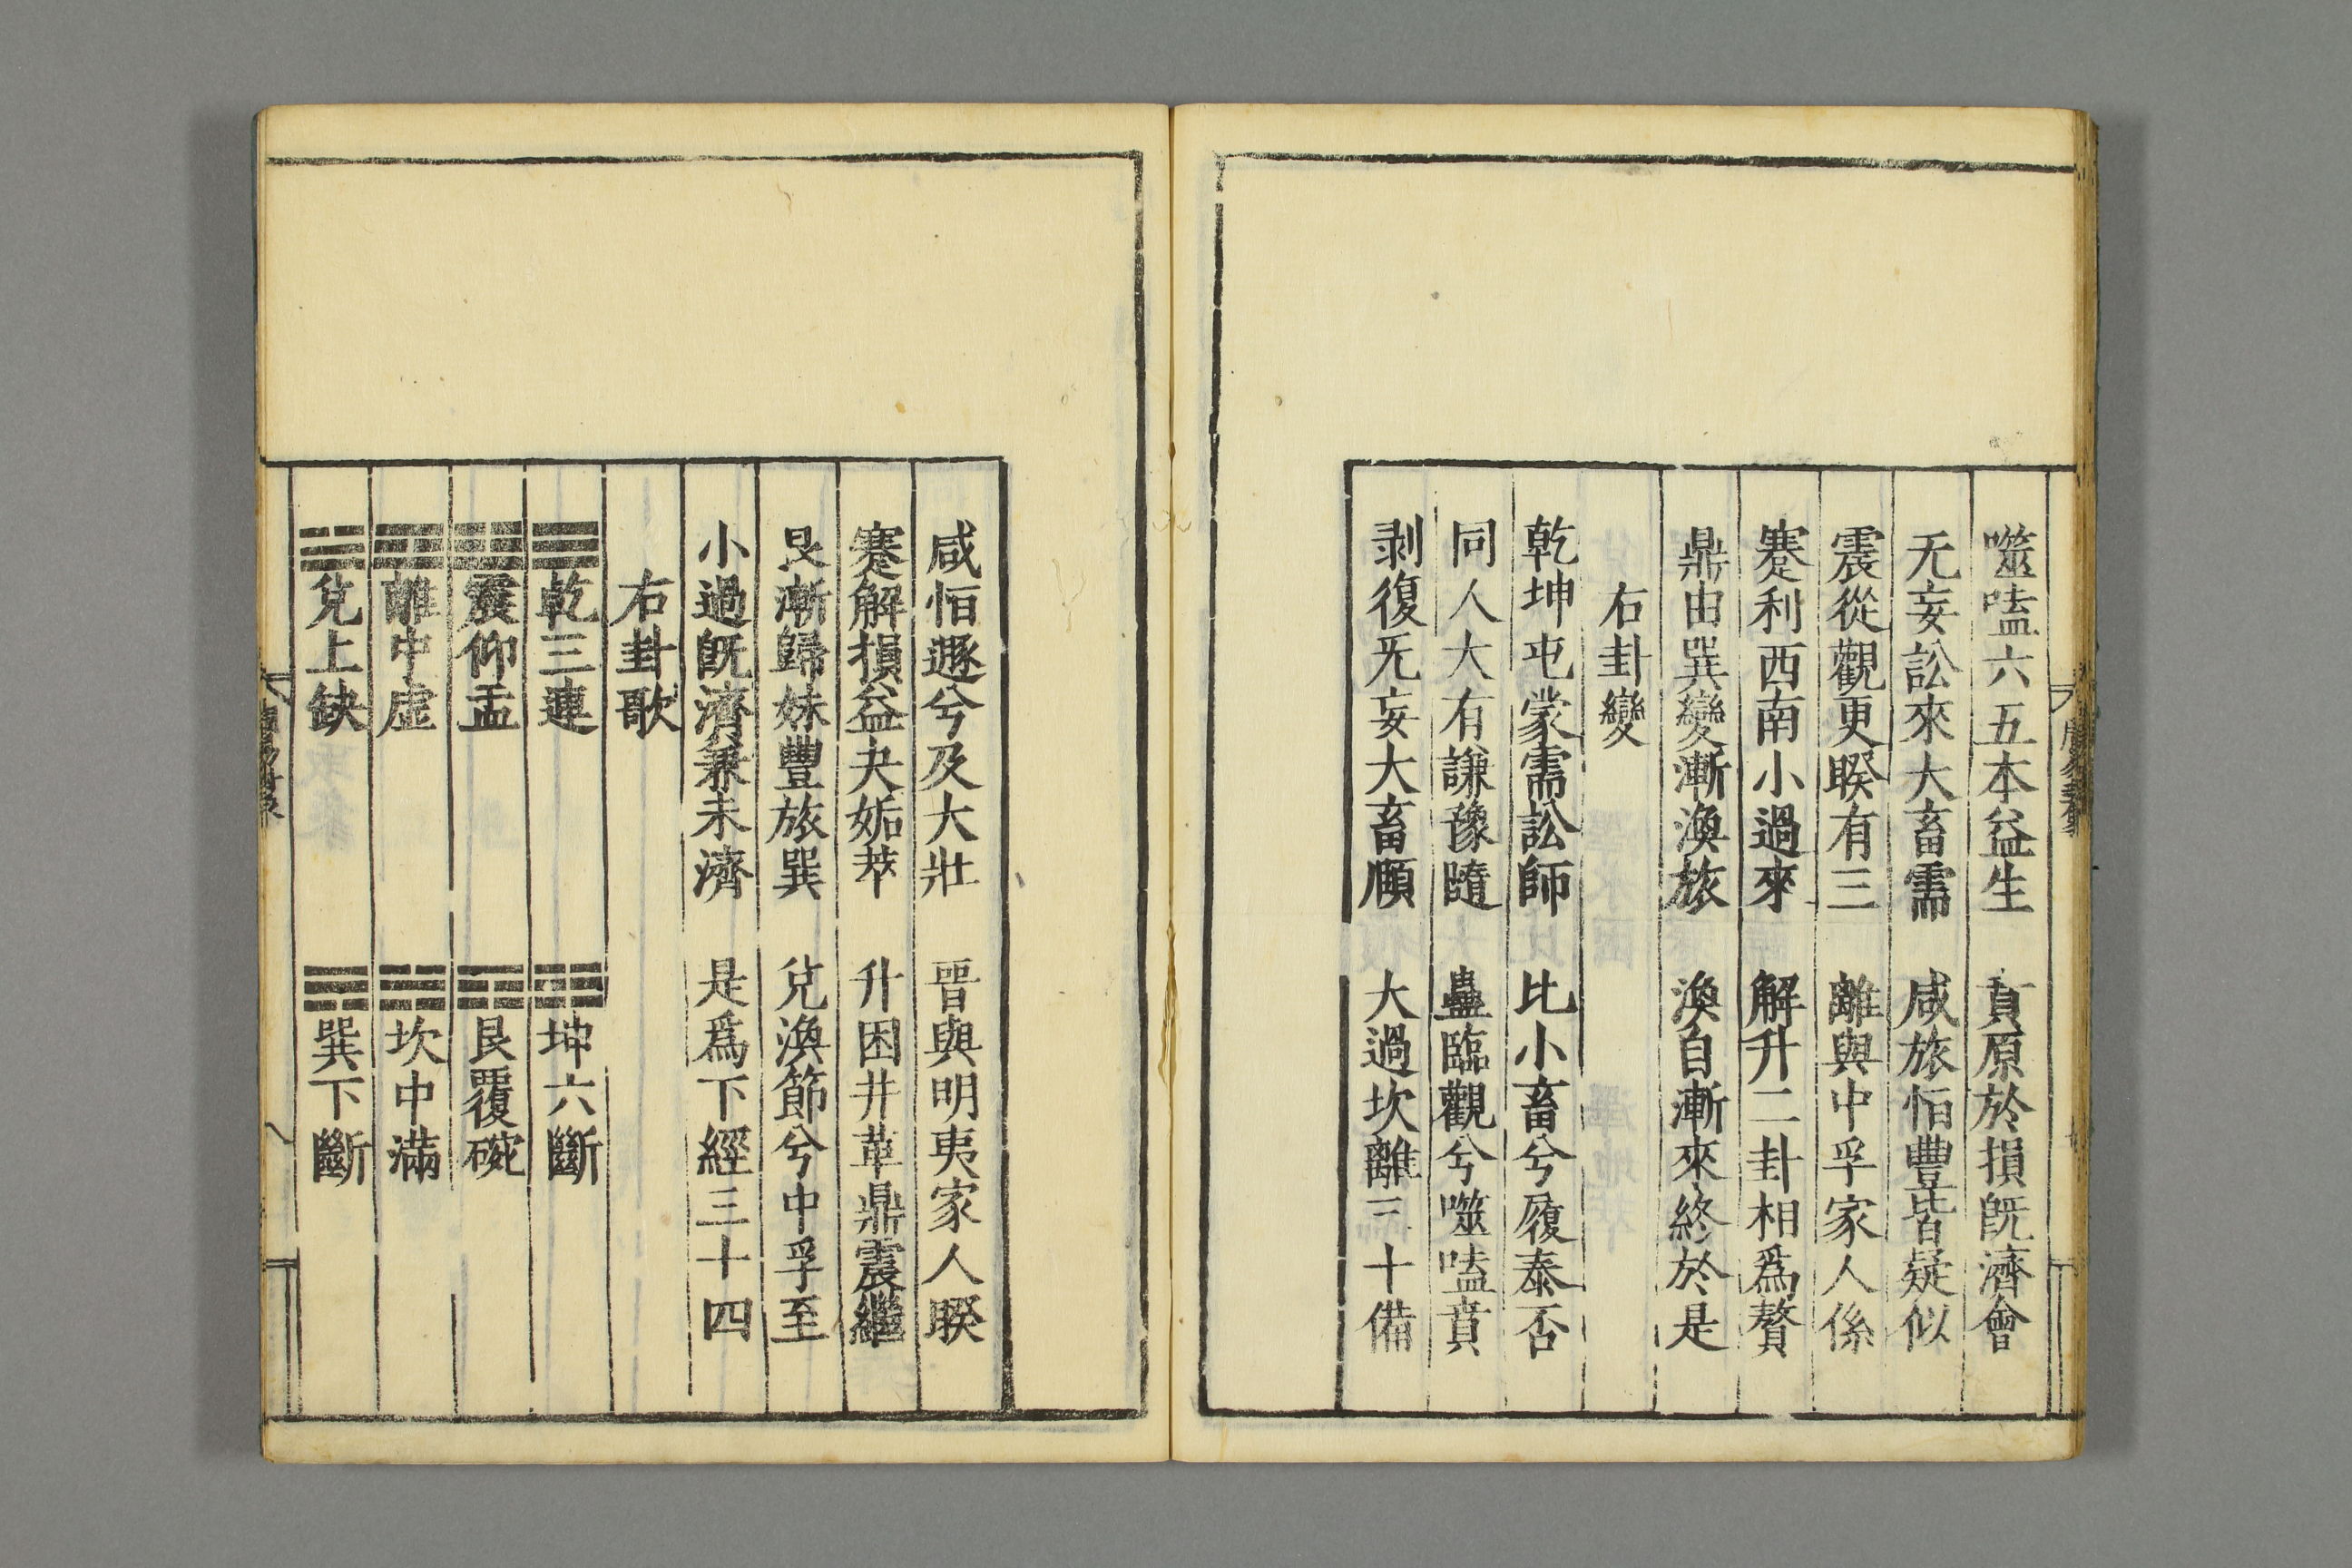 噬嗑六五本益生　賁原於損既濟會
无妄訟來大畜需　咸旅恒豐皆疑似
震從觀更睽有三　離與中孚家人係
蹇利西南小過來　解升二卦相爲贅
鼎由巽變漸渙旅　渙自漸來終於是
右卦變
乾坤屯蒙需訟師　比小畜兮履泰否
同人大有謙豫隨　蠱臨觀兮噬嗑賁
剥復无妄大畜頤　大過坎離三十備
咸恒遯兮及大壯　晉與明夷家人睽
蹇解損益夬姤萃　升困井革鼎震繼
艮漸歸妹豐旅巽　兌渙節兮中孚至
小過既濟兼未濟　是爲下經三十四
右卦歌
☰乾三連　☷坤六斷
☳震仰盂　☶艮覆碗
☲離中虛　☵坎中滿
☱兌上缺　☴巽下斷